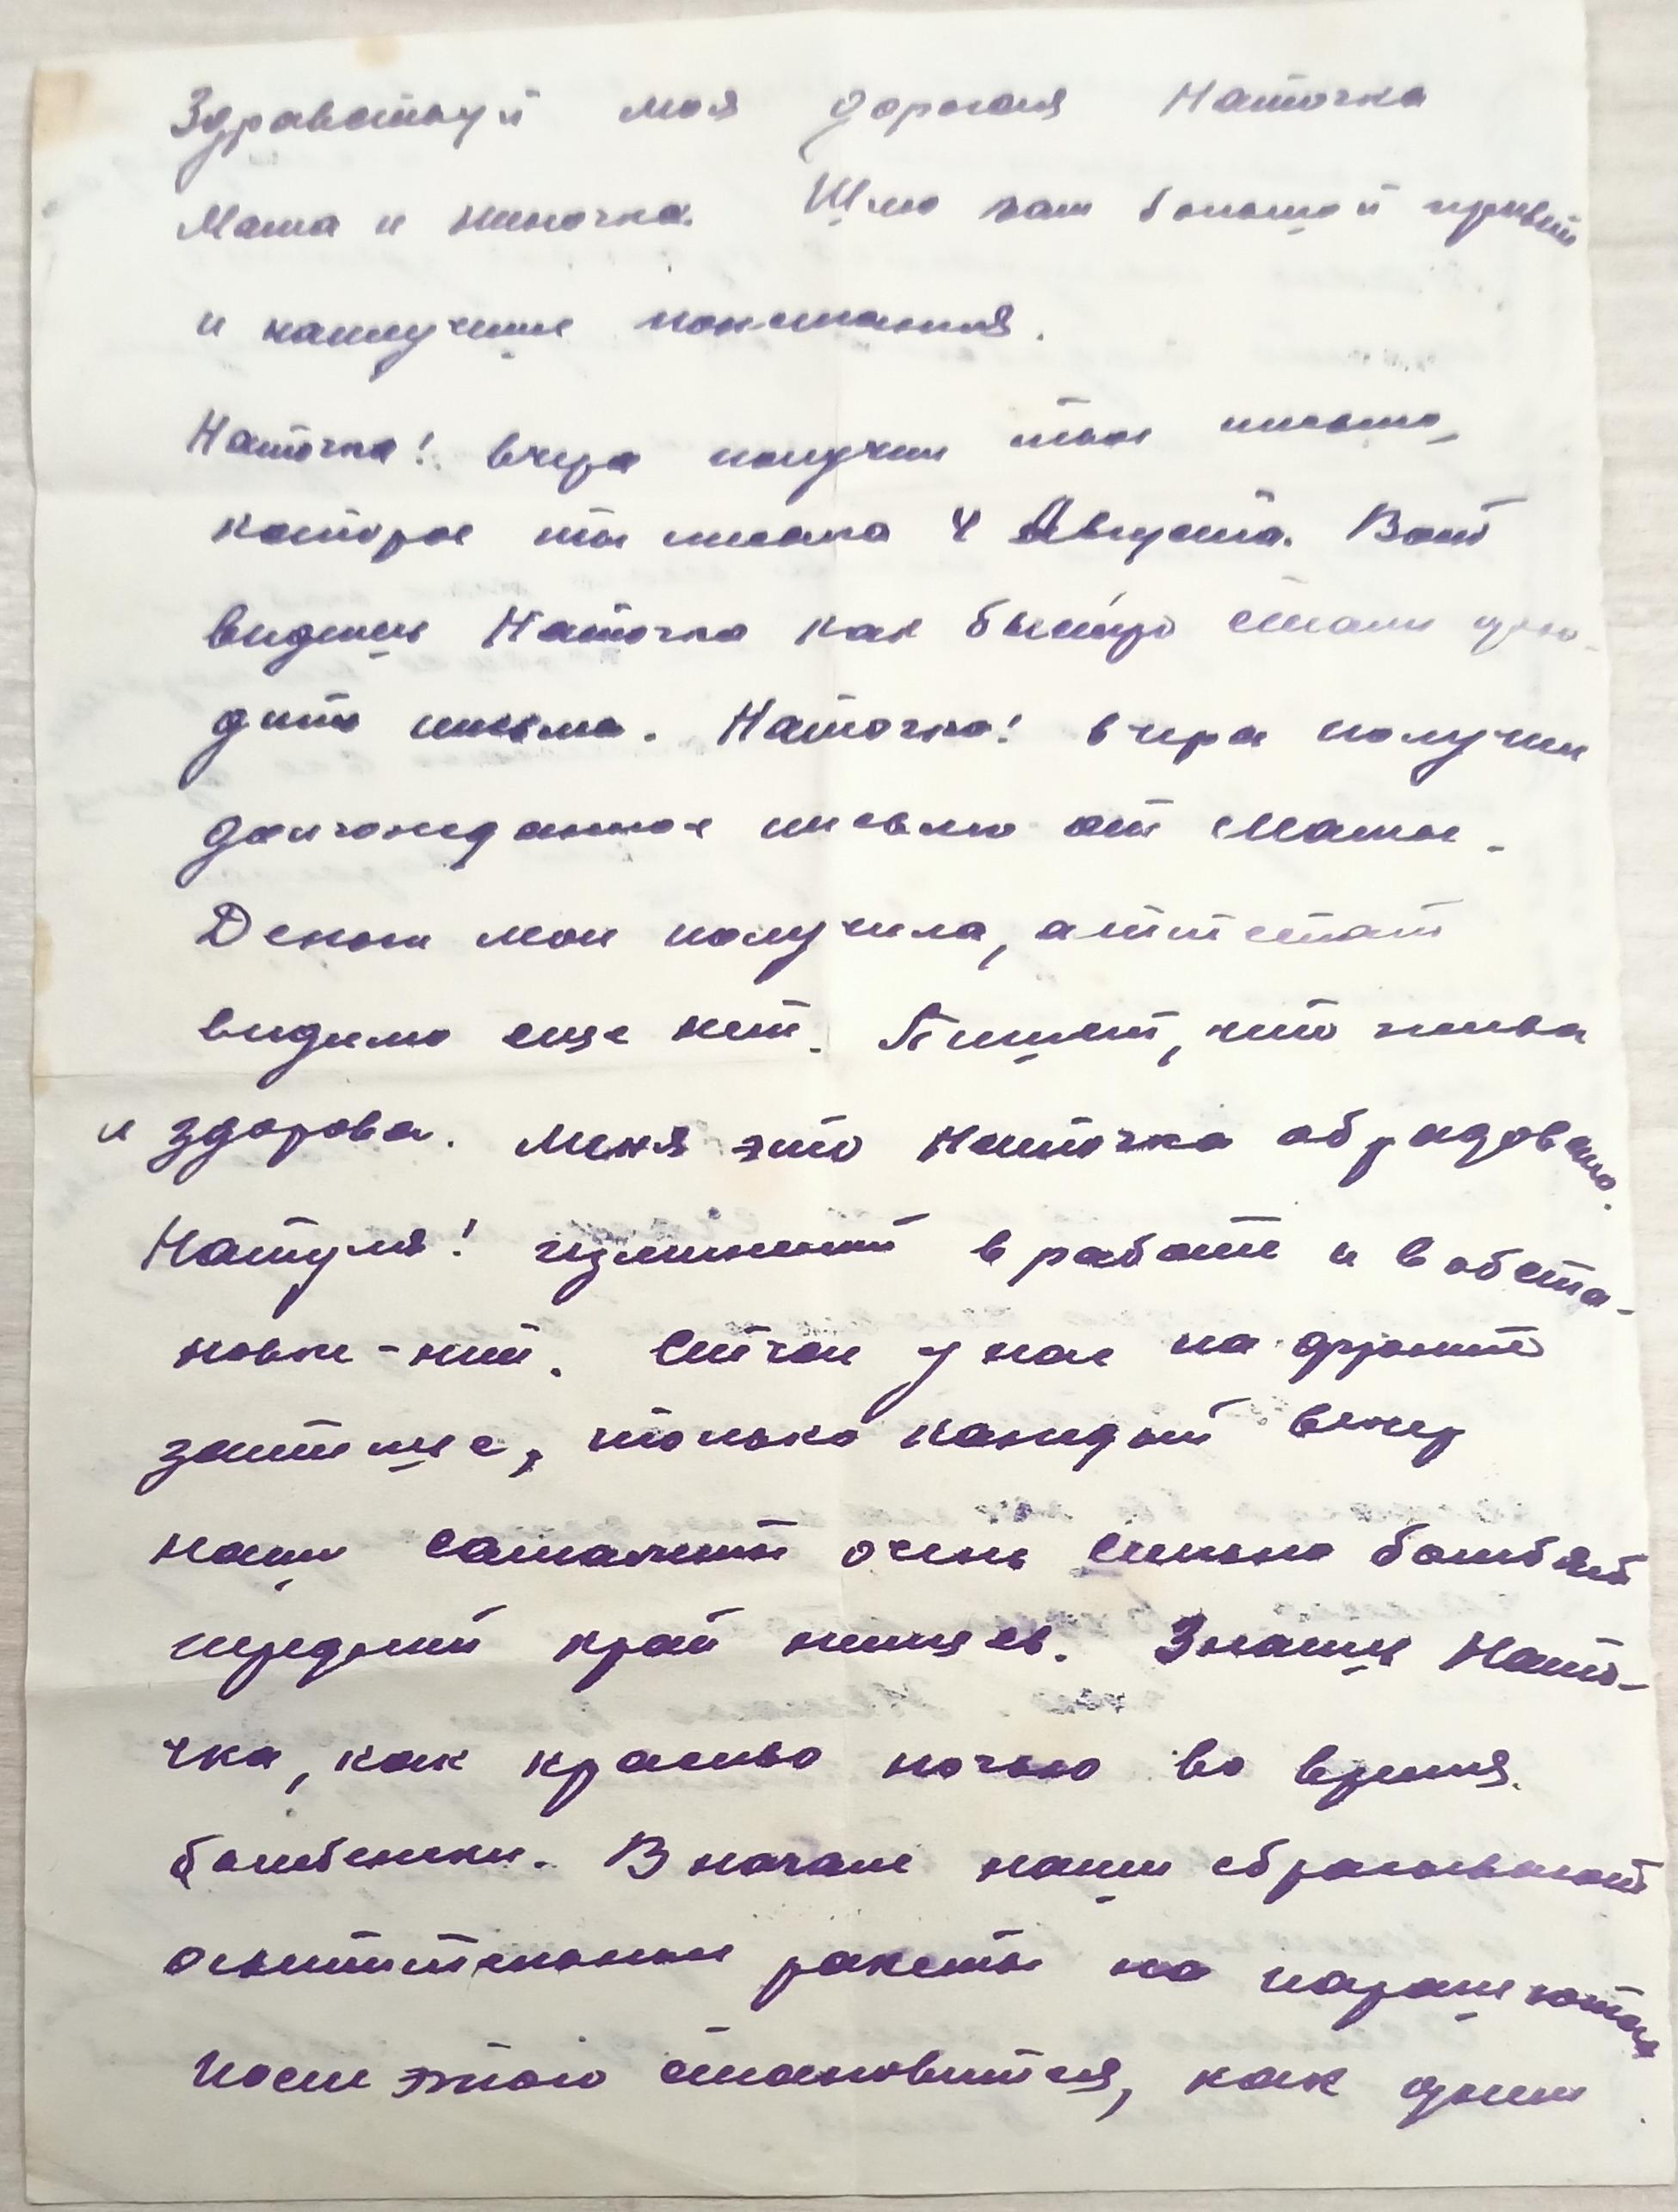 Здравствуй моя дорогая Наточка
Мама и Ниночка. Шлю вам большой привет
и наилучшие пожелания.
Наточка! вчера получил твое письмо,
которое ты писала 4 Августа. Вот
видишь Наточка как быстро стали ухо-
дить письма. Наточка! вчера получил
долгожданное письмо от Мамы.
Деньги мои получила, аттестат
видимо еще нет. Пишет, что жива
и здорова. Меня это Наточка обрадовало.
Натуля! изменений в работе и в обста-
новке - нет. Сейчас у нас на фронте
затишье, только каждый вечер
наши самолеты очень сильно бомбят
передний край немцев. Знаешь Нато-
чка, как красиво ночью во время
бомбежки. В начале наши сбрасывают
осветительные ракеты на парашютах
после этого становится, как днем